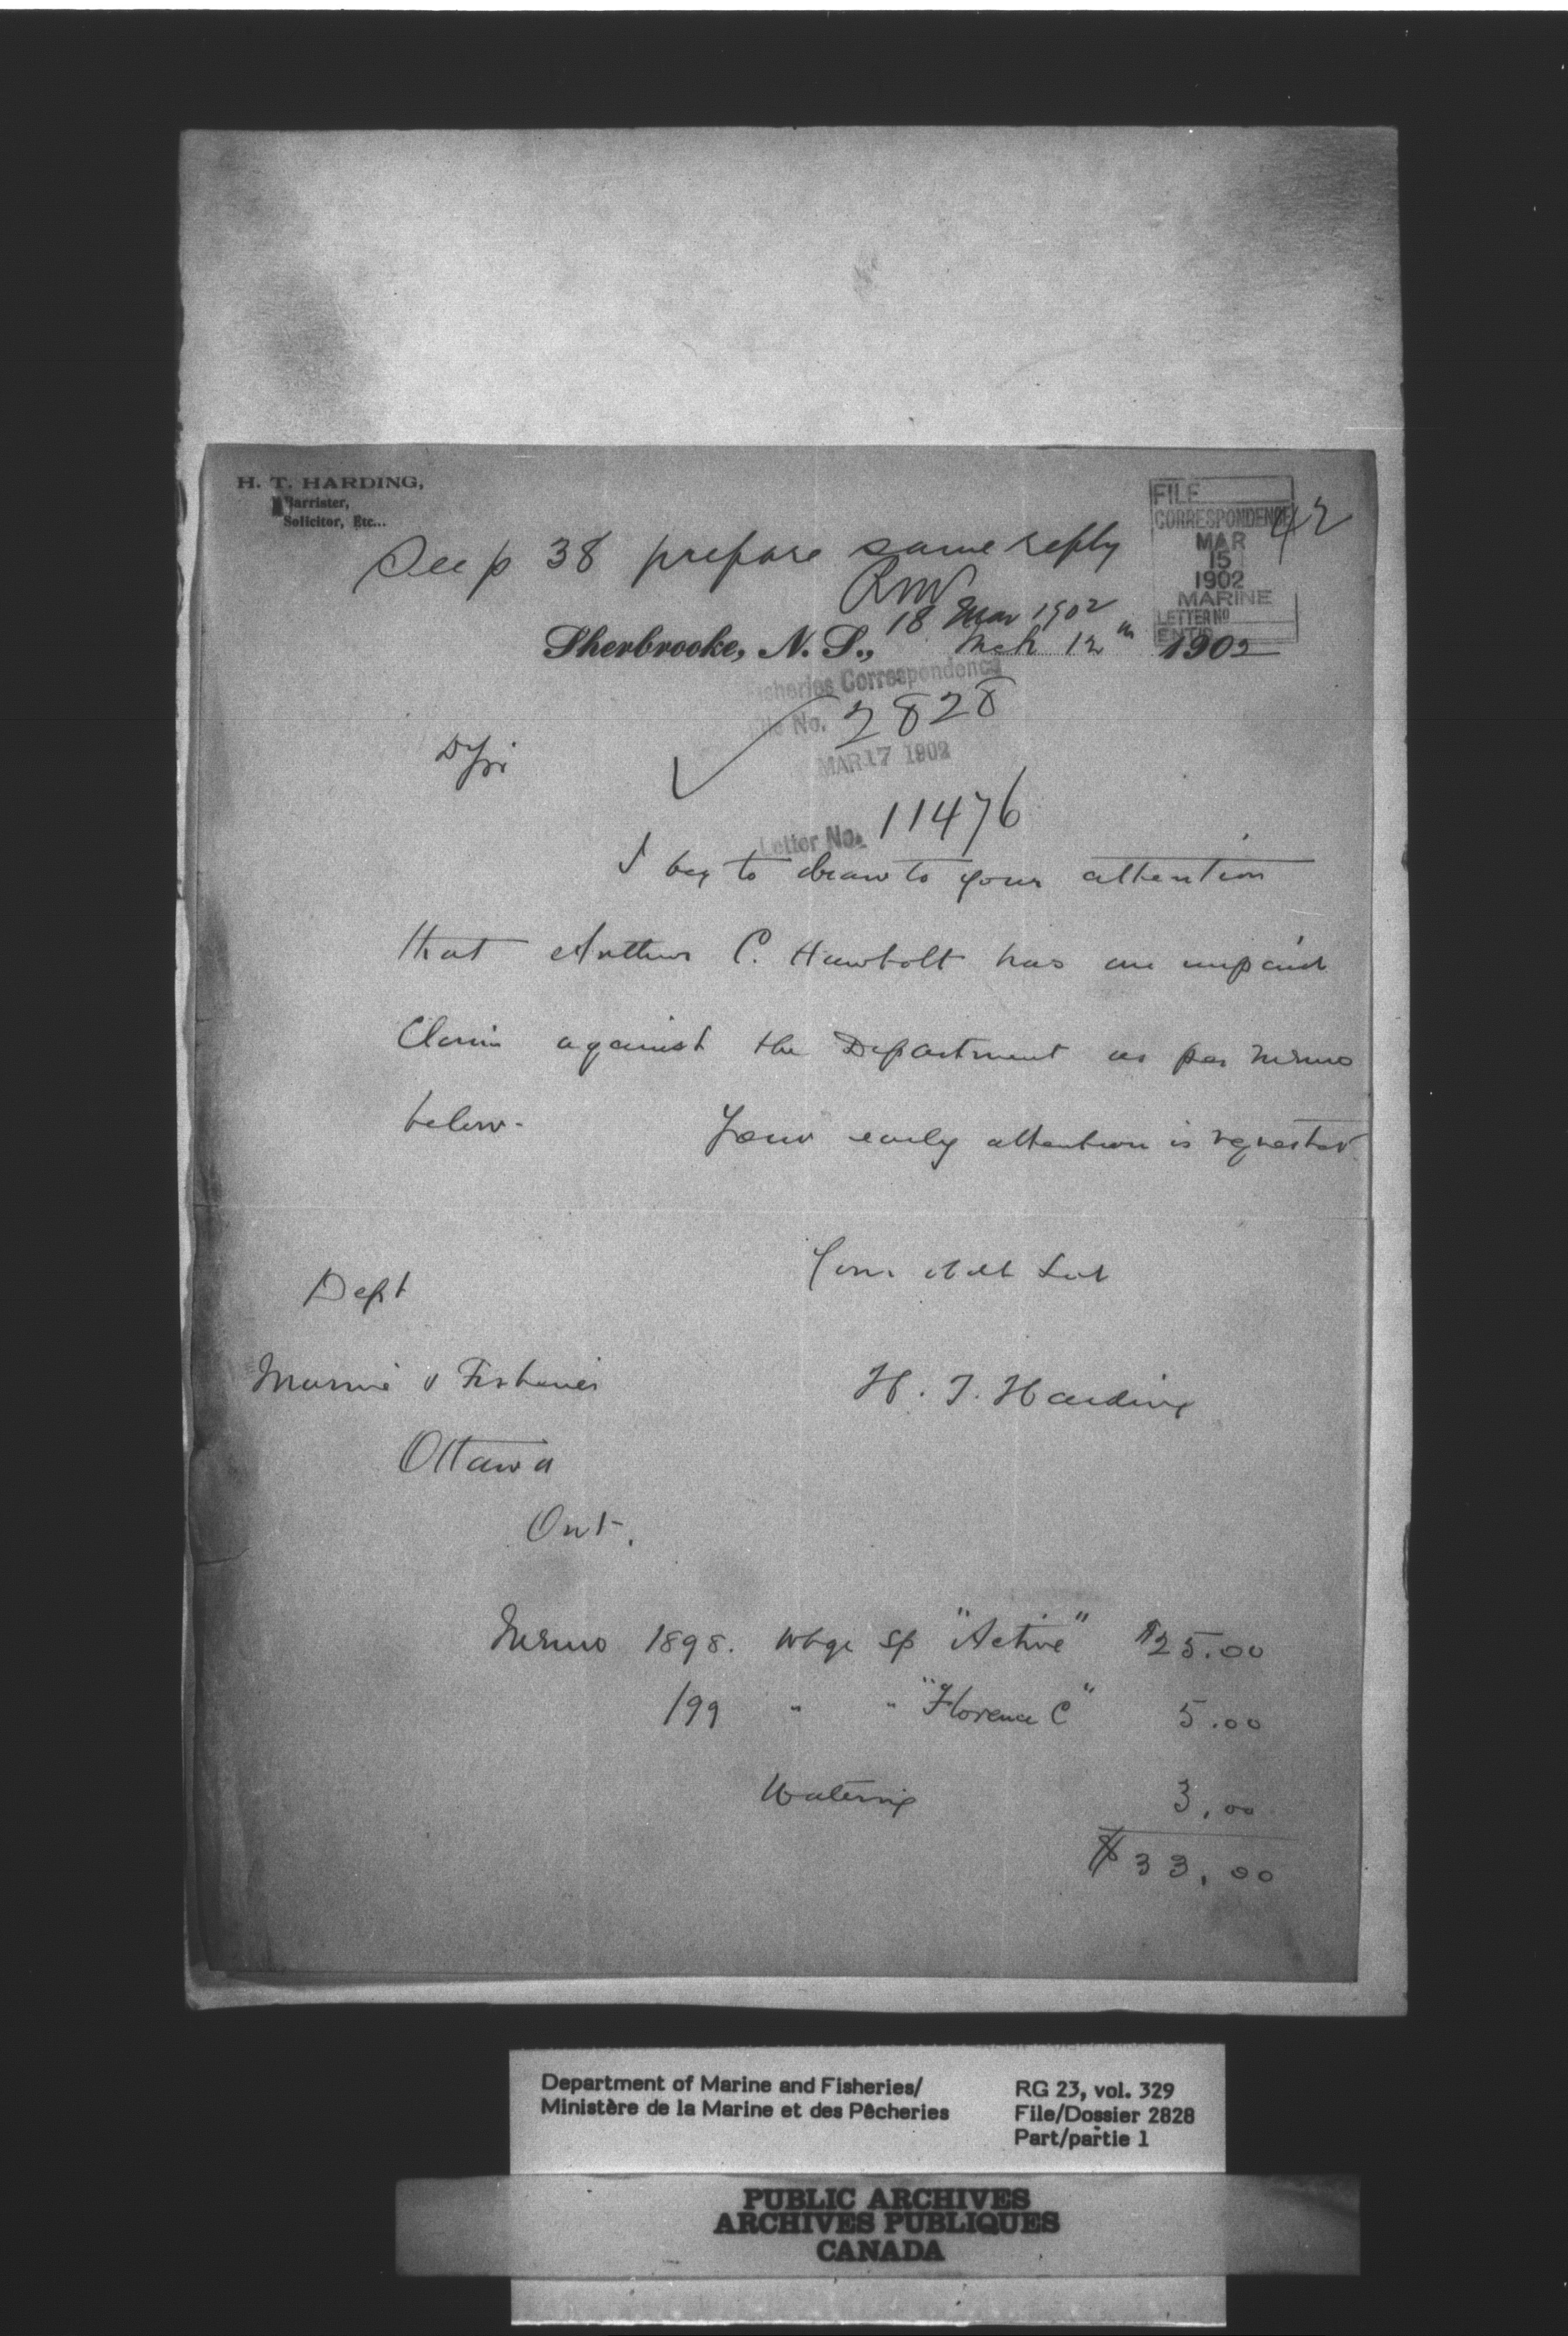 H. T. HARDING,
Barrister,
Solicitor, Etc...
FILE
CORRESPONDENCE
42
MAR
15
1902
MARINE
LETTER No
See p 38 prepare same reply
18 Mar 1902
Sherbrooke, N. S., Mch 12th 1902
Fisheries Correspondence
File No. 2828
MAR 17 1902
Letter No. 11476
D Sir
I beg to draw to your attention
that Arthur C. Hawbolt has an unpaid
Claim against the Department as per memo
below. Your early attention is requested.
Your Obdt Svt
Dept
Marine & Fisheries
H. T. Harding
Ottawa
Ont.
Memo 1898. Whge sp "Active" $25.00
199 " " "Florence C" 5.00
Watering 3.00
$33.00
Department of Marine and Fisheries/
Ministère de la Marine et des Pêcheries
RG 23, vol. 329
File/Dossier 2828
Part/partie 1
PUBLIC ARCHIVES
ARCHIVES PUBLIQUES
CANADA